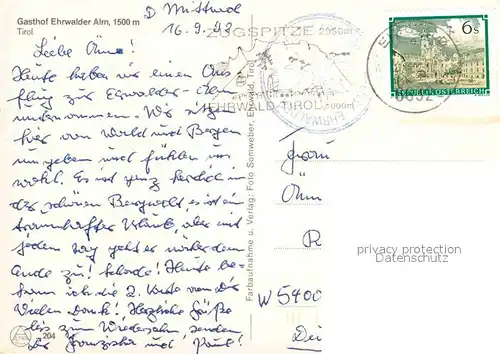 Gasthof Ehrwalder Alm, 1500 m
Tirol
D Mittwoch
16.9.92
Liebe Omi!
Heute haben wir einen Aus
flug zur Ehrwalder-Alm
unternommen. Wir sitzen
hier von Wald und Bergen
umgeben und fühlen uns
wohl. Es ist ganz herrlich in
der schönen Bergwelt, es ist ein
traumhafter Urlaub, aber mit
jedem Tag geht er wieder dem
Ende zu! Schade! Heute be-
kam ich die 2. Karte von Dir
Vielen Dank! Herzliche Grüße
bis zum Wiedersehn senden
Dir Franziska und Paul!
204
Farbaufnahme u. Verlag: Foto Somweber, Ehrwald, Tirol
ZUGSPITZE 2950m
EHRWALD-TIROL 1000m
6 S
REPUBLIK ÖSTERREICH
6632
Frau
R
W 5400
privacy protection
Datenschutz